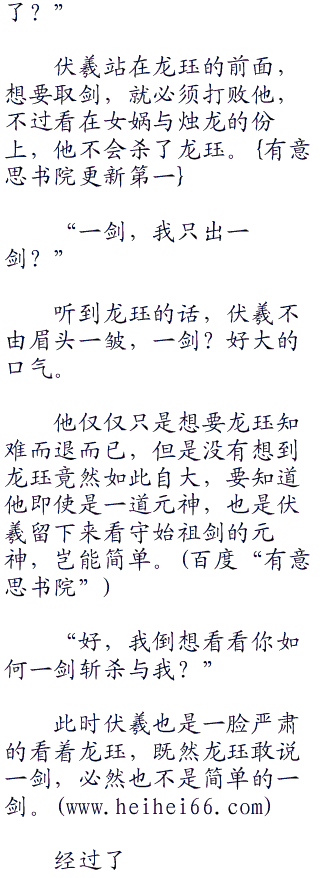 了？”
伏羲站在龙珏的前面，
想要取剑，就必须打败他，
不过看在女娲与烛龙的份
上，他不会杀了龙珏。{有意
思书院更新第一}
“一剑，我只出一
剑？”
听到龙珏的话，伏羲不
由眉头一皱，一剑？好大的
口气。
他仅仅只是想要龙珏知
难而退而已，但是没有想到
龙珏竟然如此自大，要知道
他即使是一道元神，也是伏
羲留下来看守始祖剑的元
神，岂能简单。(百度“有意
思书院”)
“好，我倒想看看你如
何一剑斩杀与我？”
此时伏羲也是一脸严肃
的看着龙珏，既然龙珏敢说
一剑，必然也不是简单的一
剑。(www.heihei66.com)
经过了